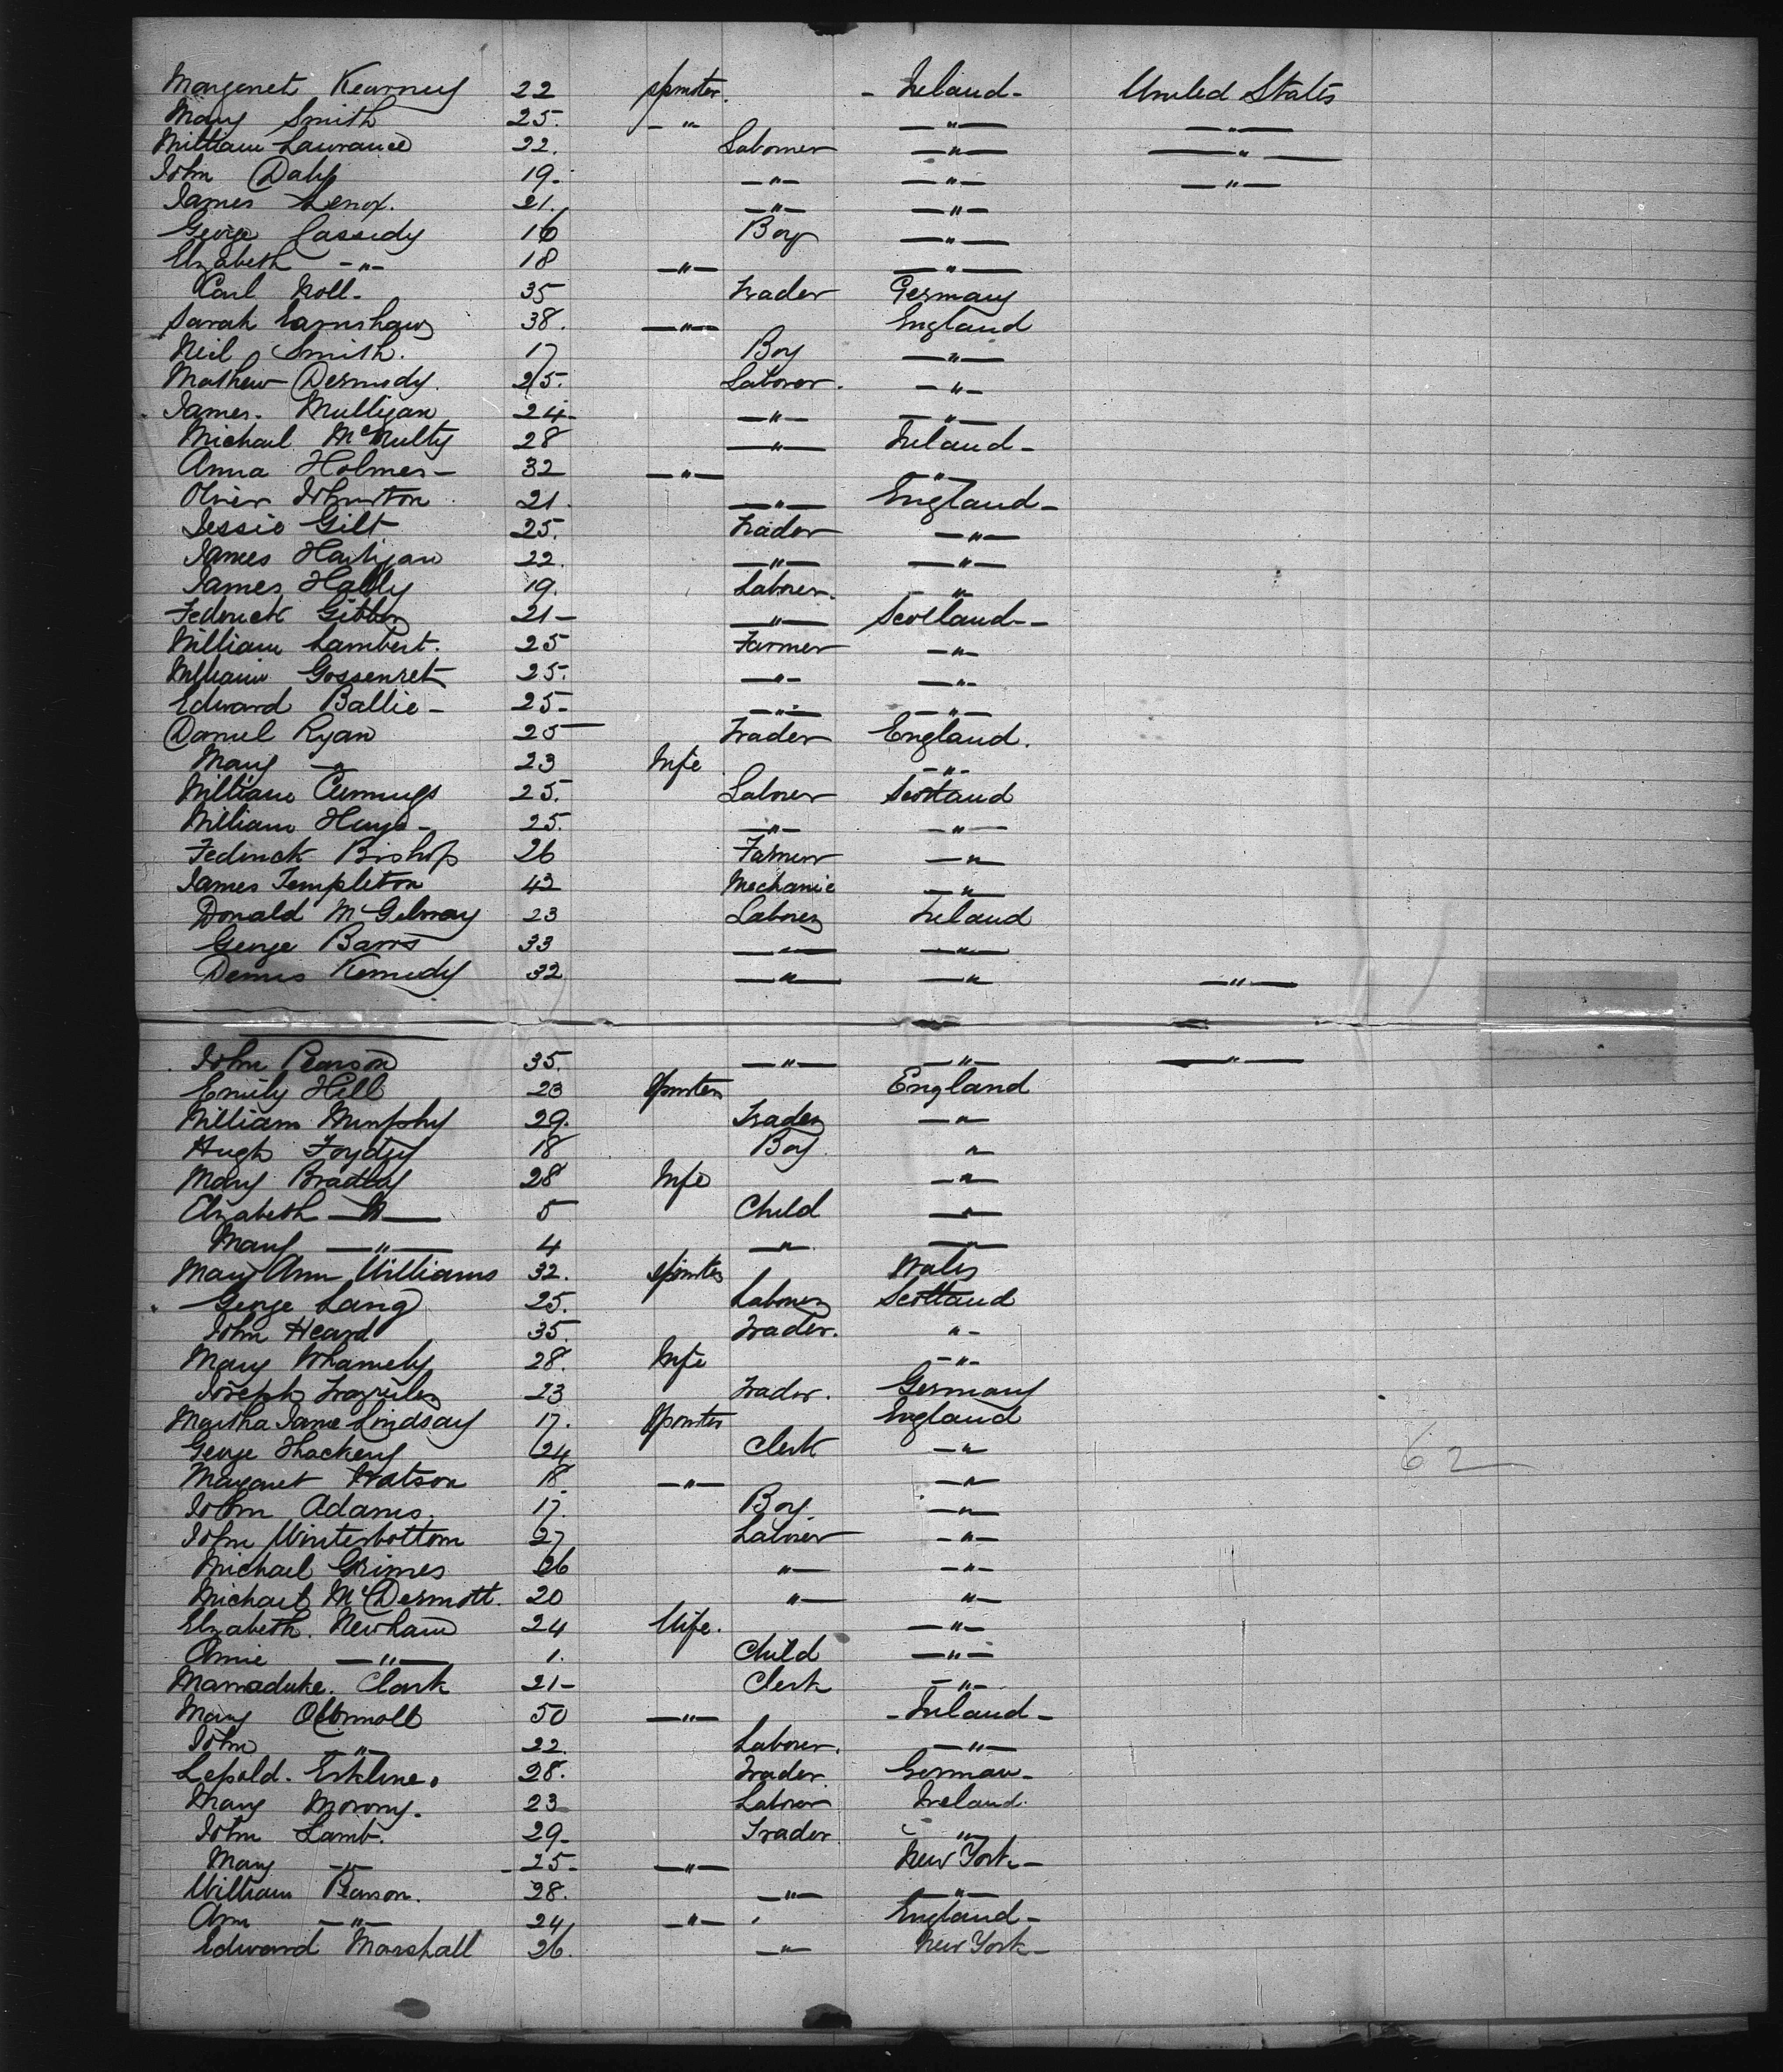 Margaret Kearney 22 Spinster. - Ireland - United States
Mary Smith 25. - " - " - " -
William Lawrance 22. Laborer - " - - " -
John Daly 19. - " - - " - - " -
James Lenox. 21. - " - - " -
George Cassidy 16 Boy - " -
Elizabeth - " - 18 - " - - " -
Carl Noll - 35 Trader Germany
Sarah Earnshaw 38. - " - England
Neil Smith. 17 Boy - " -
Mathew Dermody. 25. Laborer. - " -
James. Mulligan 24 - - " - - " -
Michael McNulty 28 - " - Ireland -
Anna Holmes - 32 - " - - " -
Oliver Johnston 21. - " - England -
Jessie Gilt 25. Trader - " -
James Hartigan 22. - " - - " -
James Hally 19. Laborer. - " -
Fedrick 21 - - " - Scotland -
William Lambert. 25 Farmer - " -
William Gossenret 25. - " - - " -
Edward Ballie - 25 - - " - - " -
Daniel Ryan 25 Trader England.
Mary - " 23 Wife - " -
William Cumings 25. Laborer Scotland
William Hays - 25. - " - - " -
Fedrick Bishop 26 Farmer - "
James Templeton 42 Mechanic - " -
Donald McGilvray 23 Laborer Ireland
George Barrs 33 - " - - " -
Denis Kennedy 32 - " - - " - " -
John Pearson 35. - " - - " - - " -
Emily Hill 23 Spinster England
William Murphy 29. Trader - "
Hugh 18 Boy. "
Mary Bradley 28 Wife - " -
Elizabeth - " - 5 Child - " -
Mary - " - 4 - " - - " -
Mary Ann Williams 32. Spinster Wales
George Lang 25. Laborer Scotland
John Heard 35. Trader. " -
Mary Whamely 28. Wife - " -
Joseph 23 Trader. Germany
Martha Jane Lindsay 17. Spinster England
George Thackery 24 Clerk - " 62
Margaret Watson 18. - " - - "
John Adams. 17. Boy. - " -
John Winterbottom 27 Laborer - " -
Michael Grimes 26 " - - " -
Michael McDermott. 20 " - " -
Elizabeth. Newham 24 Wife. - " -
Annie - " - 1. Child - " -
Marmaduke. Clark 21 - Clerk - " -
Mary OConnoll 50 - " - - Ireland -
John - " - 22. Laborer. - " -
Lepold. Erkline. 28. Trader. German -
Mary Morony. 23 Laborer Ireland.
John Lamb. 29 - Trader "
Mary - " - - 25 - - " - New York -
William Pearson. 28. - " - - " -
Ann - " - 24 - " - England -
Edward Marshall 26. - " New York -